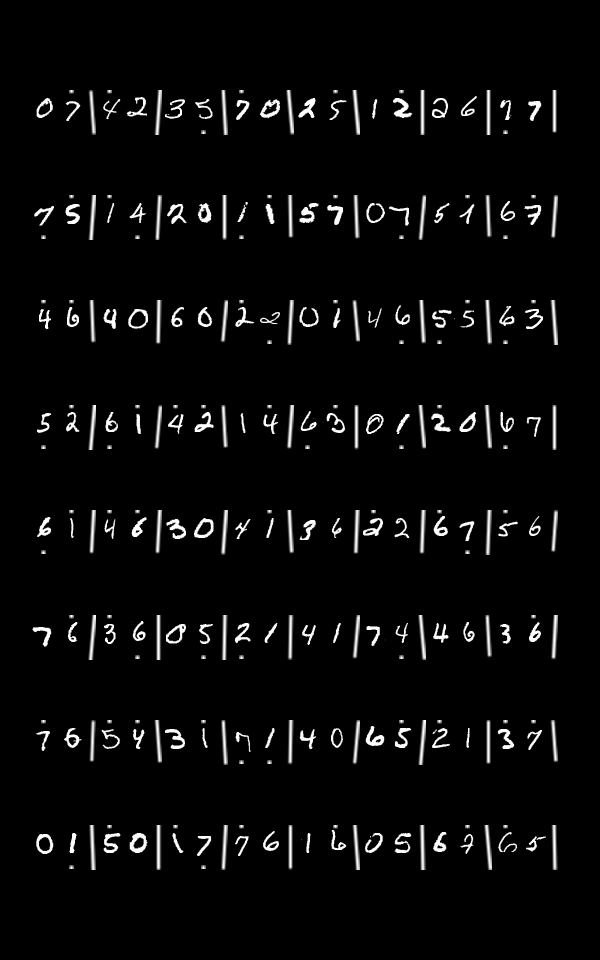 0 7 | 4 2 | 3 5 | 7 0 | 2 5 | 1 2 | 2 6 | 7 7 |
7 5 | 1 4 | 2 0 | 1 1 | 5 7 | 0 7 | 5 1 | 6 7 |
4 6 | 4 0 | 6 0 | 2 2 | 0 1 | 4 6 | 5 5 | 6 3 |
5 2 | 6 1 | 4 2 | 1 4 | 6 3 | 0 1 | 2 0 | 6 7 |
6 1 | 4 6 | 3 0 | 4 1 | 3 6 | 2 2 | 6 7 | 5 6 |
7 6 | 3 6 | 0 5 | 2 1 | 4 1 | 7 4 | 4 6 | 3 6 |
7 6 | 5 4 | 3 1 | 7 1 | 4 0 | 6 5 | 2 1 | 3 7 |
0 1 | 5 0 | 1 7 | 7 6 | 1 6 | 0 5 | 6 7 | 6 5 |